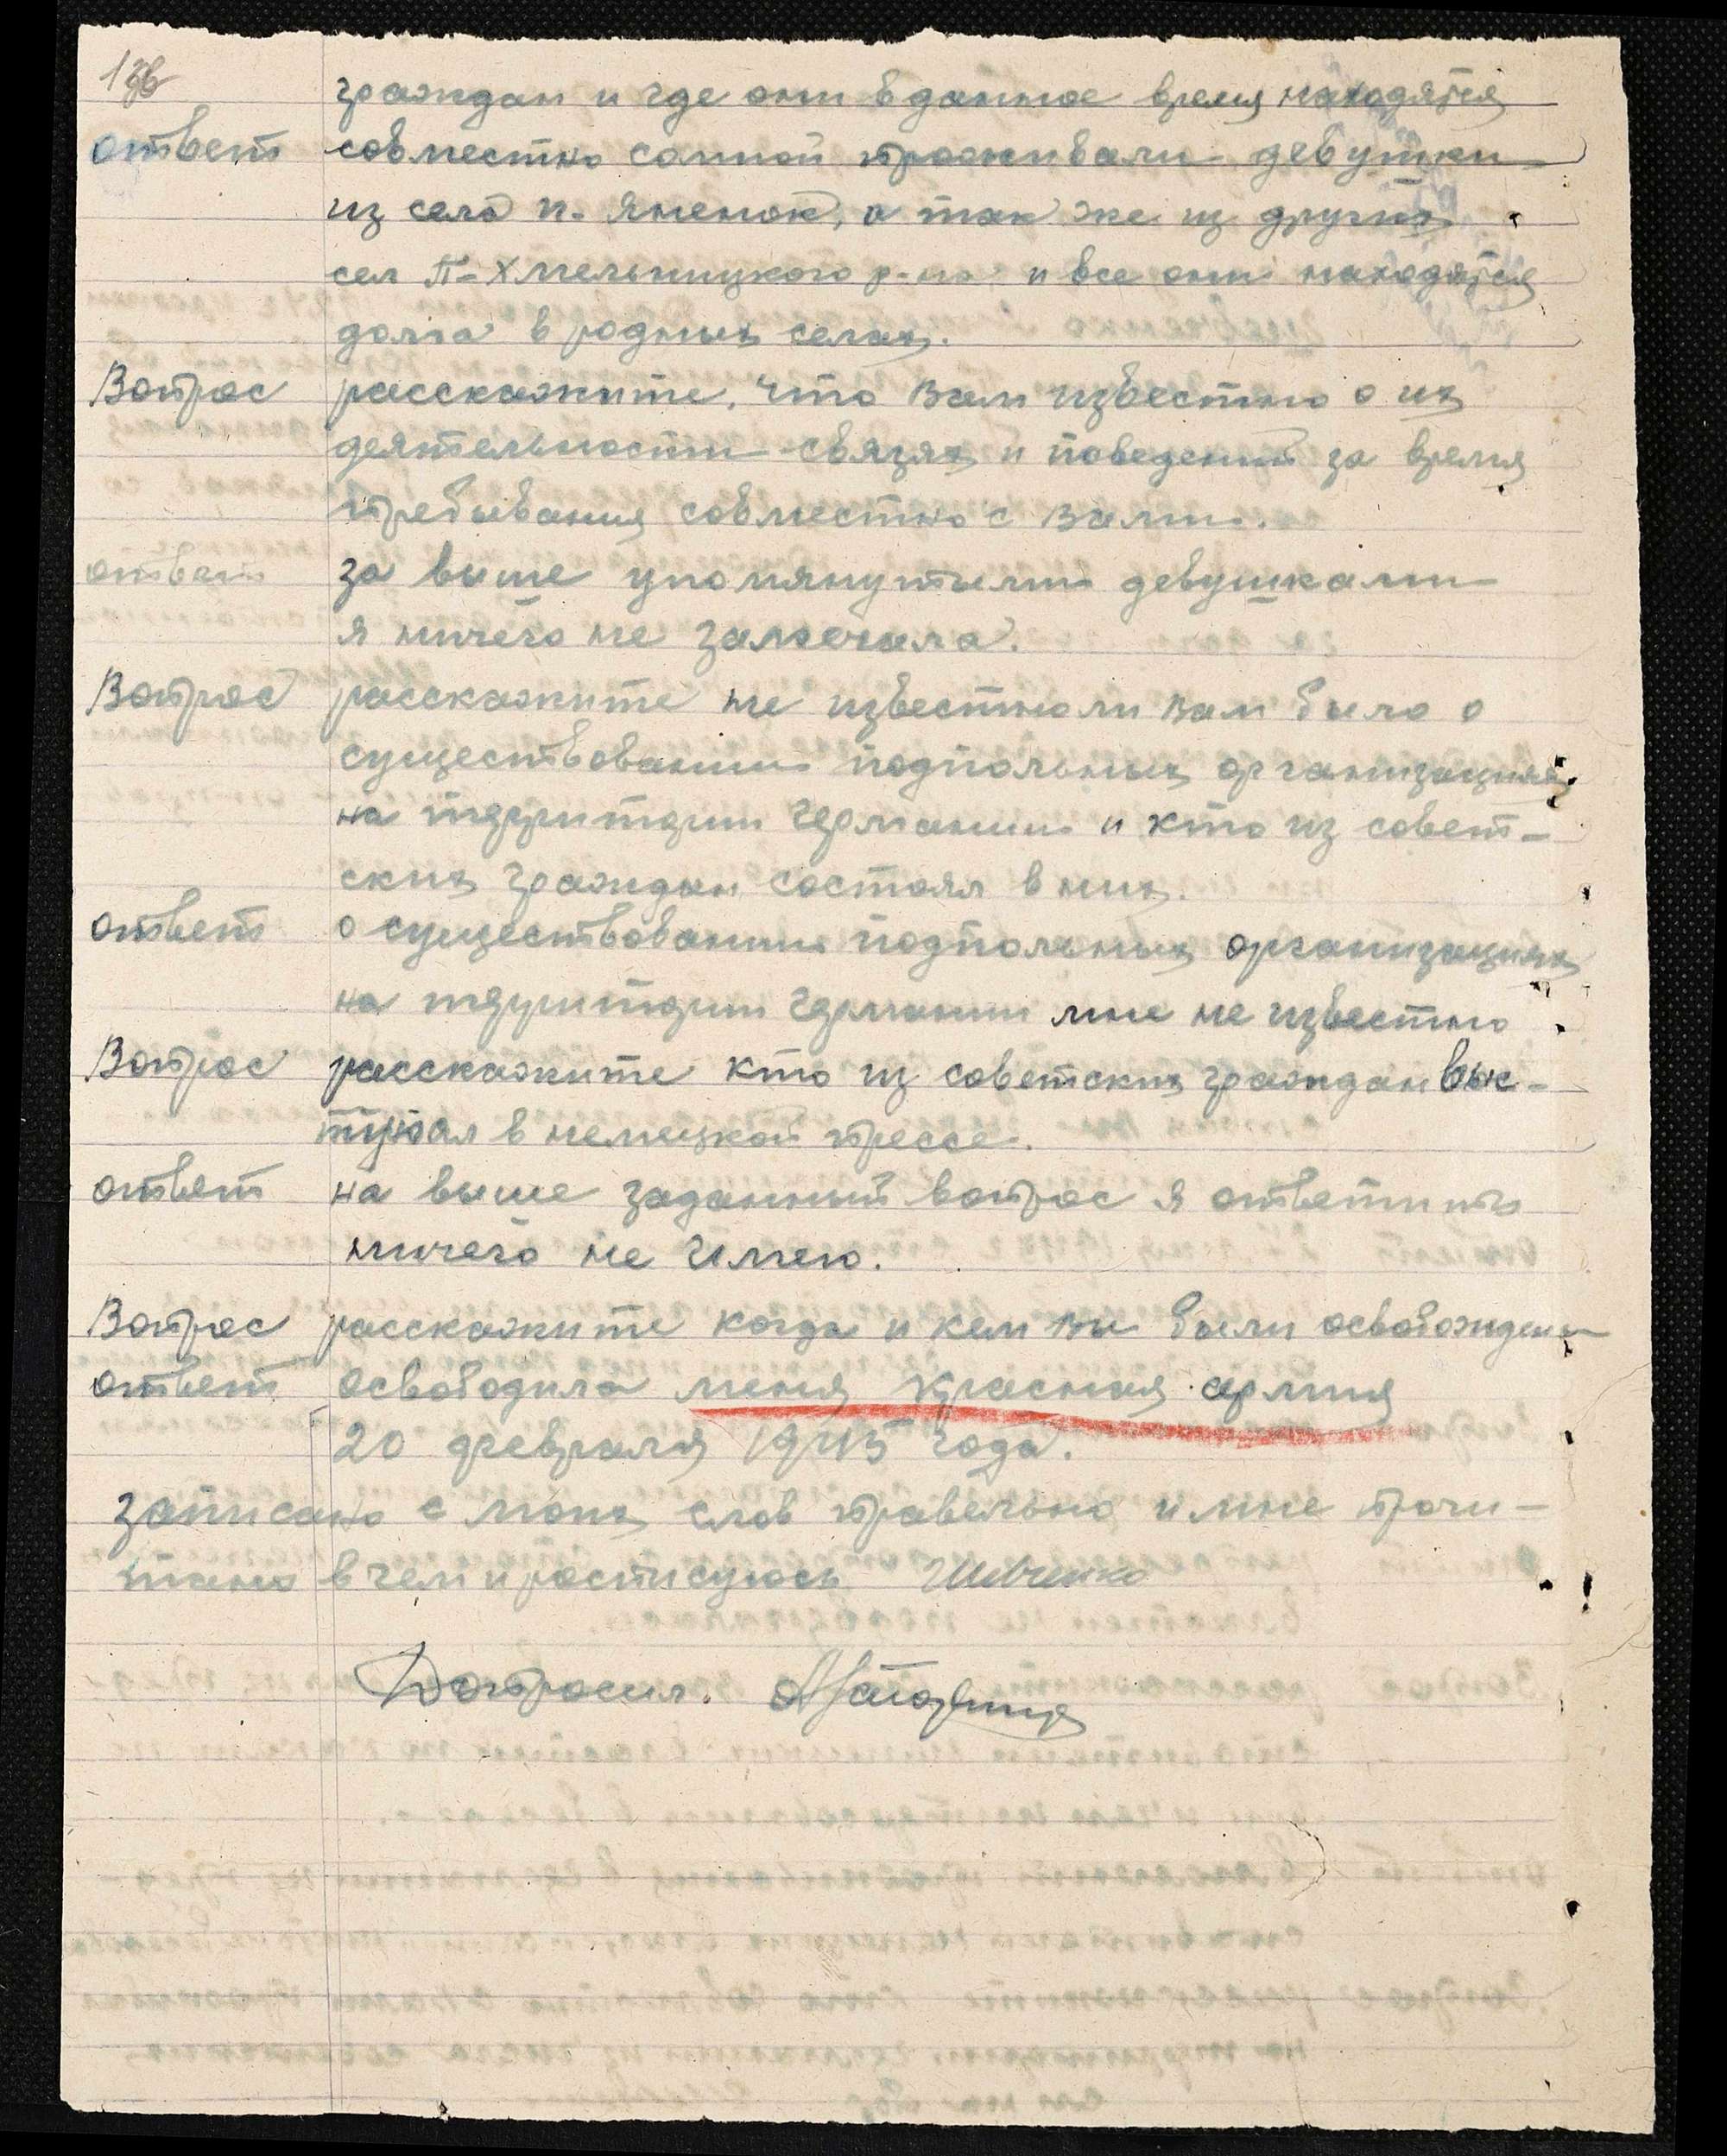 граждан и где они в данное время находятся
ответ совместно сомной проживали девушки
из села п. Яченок, а так же из других
сел П-Хмельницкого р-на и все они находятся
дома в родных селах.
Вопрос расскажите, что Вам известно о их
деятельности связях и поведений за время
пребывания совместно с Вами.
ответ за выше упомянутыми девушками
я ничего не замечала.
Вопрос расскажите не известноли Вам было о
существовании подпольных организациях
на территории Германии и кто из совет-
ских граждан состоял в них.
ответ о существовании подпольных организациях
на територии Германии мне не известно
Вопрос расскажите кто из советских граждан выс-
тупал в немецкой прессе.
ответ на выше заданный вопрос я ответить
ничего не имею.
Вопрос расскажите когда и кем Вы были освобождены
ответ освободила меня красная армия
20 февраля 1945 года.
Записано с моих слов правельно и мне прочи-
тано в чем и росписуюсь Шевченко
Допросил.